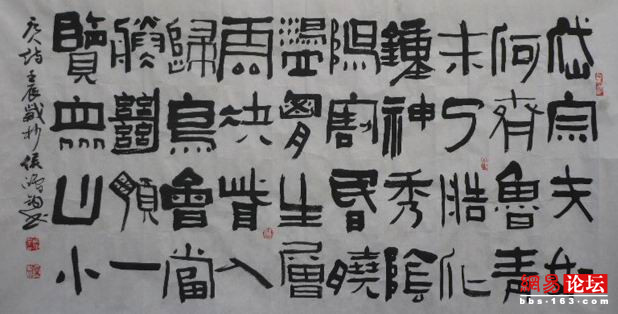 岱宗夫如
何齊魯青
未了造化
鍾神秀陰
陽割昏曉
盪胷生層
雲決眥入
歸鳥會當
凌絕頂一
覽众山小
唐人詩壬辰歲抄侯
網易 论坛
bbs·163·com